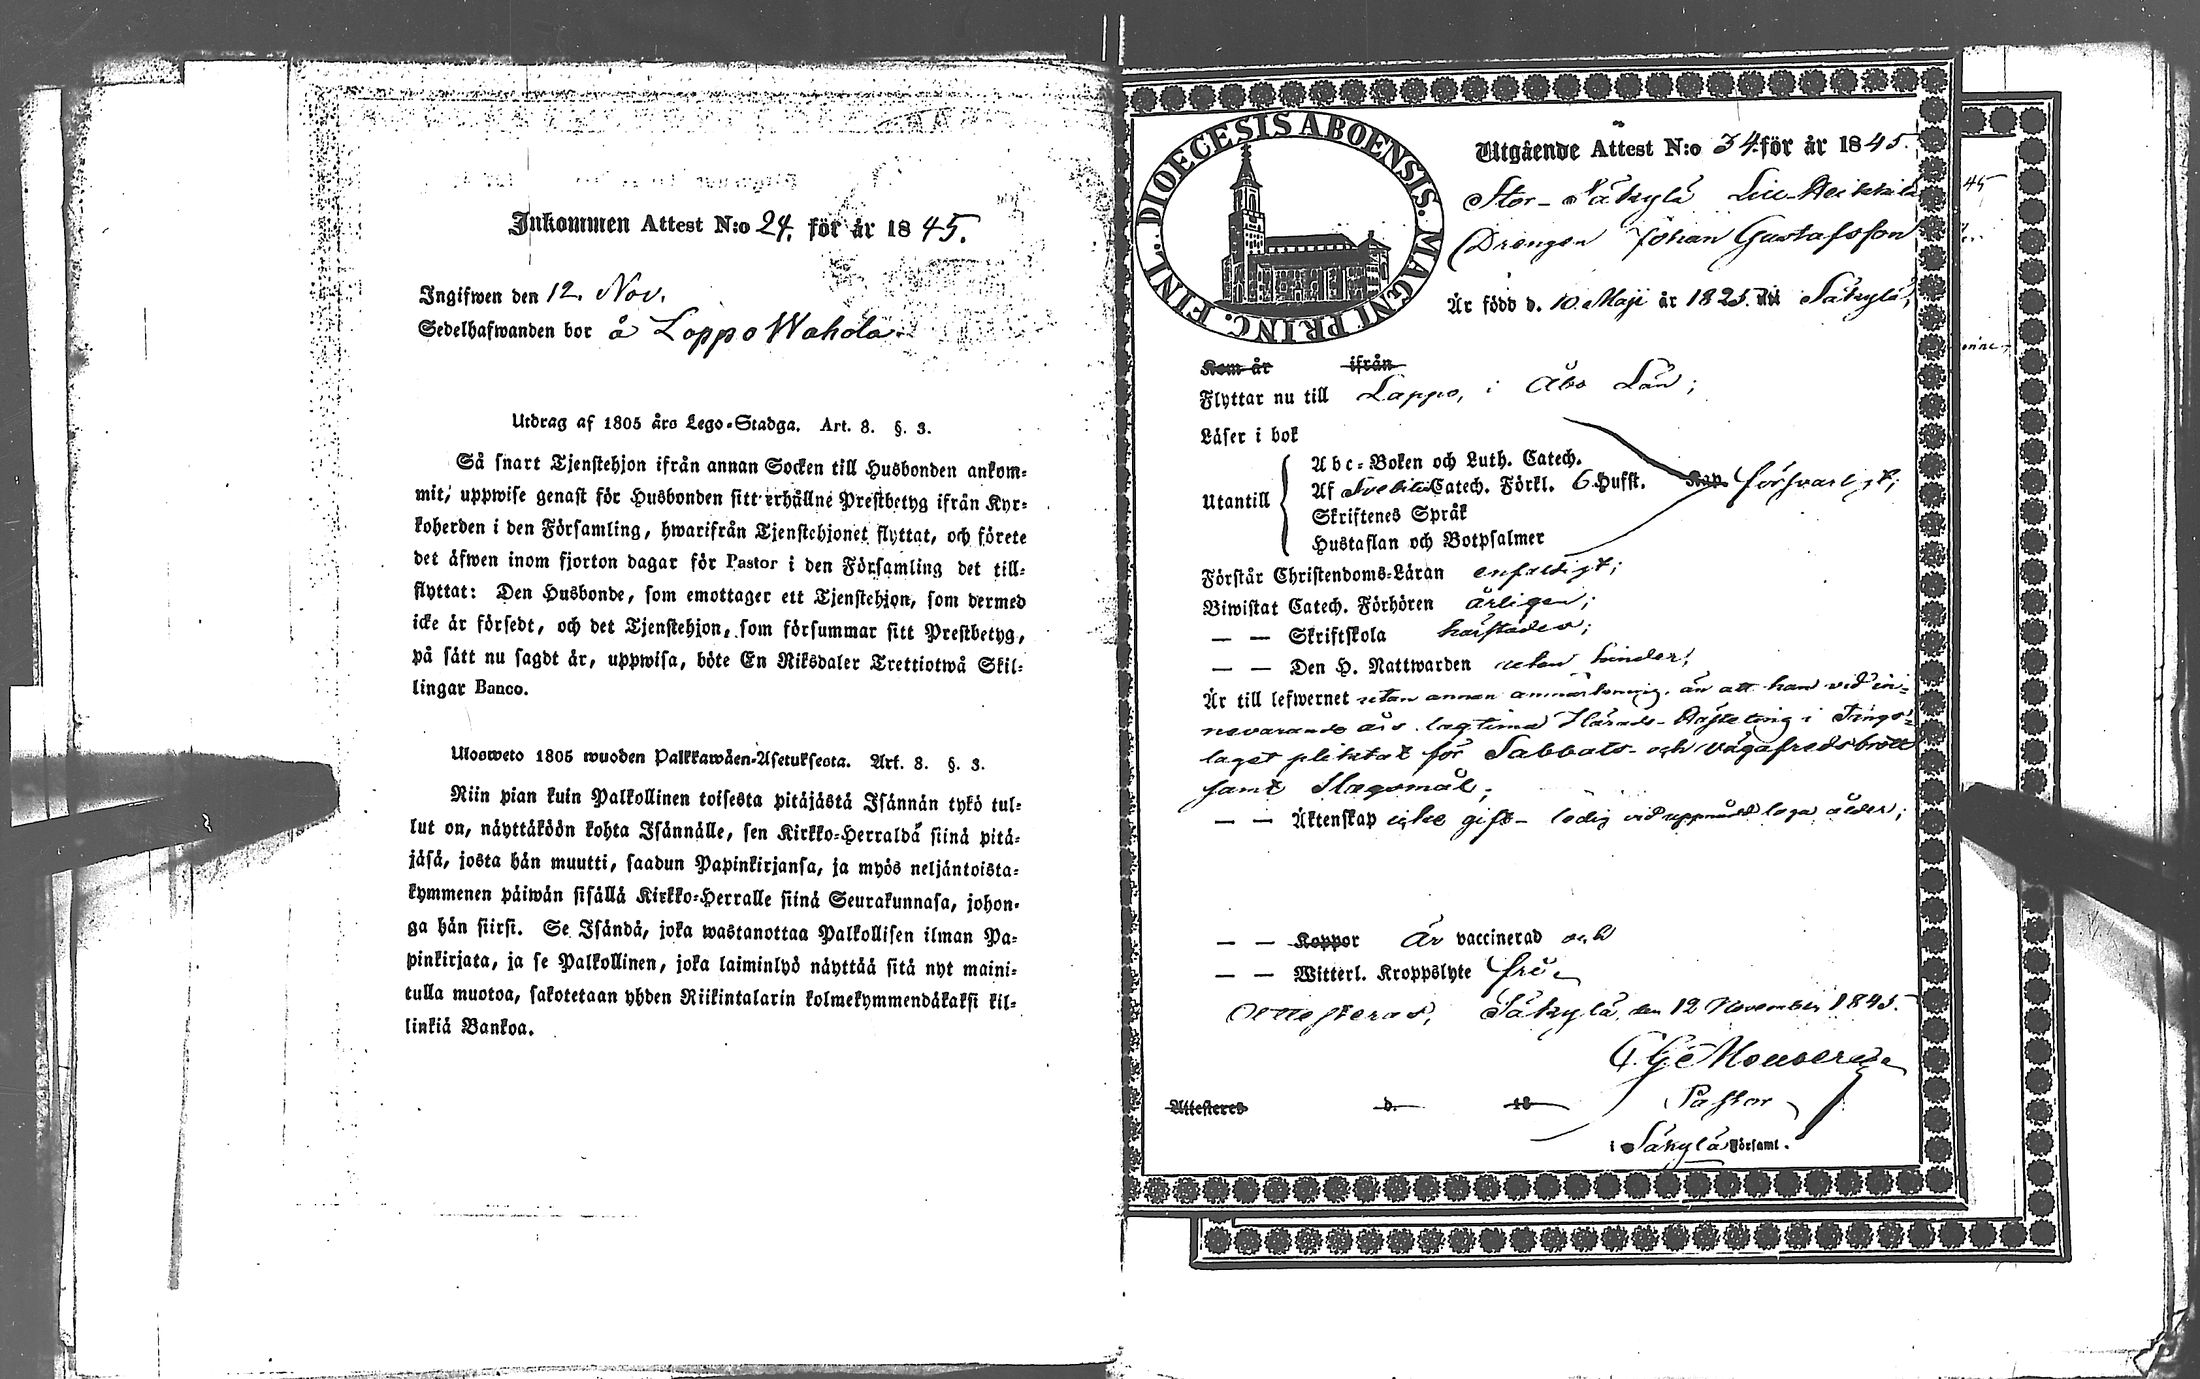 Inkommen Attest N:o 24. för år 1845.
Ingifwen den 12. Nov.
Sedelhafwanden bor å Loppo Wahola.
Utdrag af 1805 års Lego-Stadga. Art. 8. §. 3.
Så snart Tjenstehjon ifrån annan Socken till Husbonden ankom-
mit, uppwise genast för Husbonden sitt erhållne Prestbetyg ifrån Kyr-
koherden i den Församling, hwarifrån Tjenstehjonet flyttat, och förete
det äfwen inom fjorton dagar för Pastor i den Församling det till-
flyttat: Den Husbonde, som emottager ett Tjenstehjon, som dermed
icke är försedt, och det Tjenstehjon, som försummar sitt Prestbetyg,
på sätt nu sagdt är, uppwisa, böte En Riksdaler Trettiotwå Skil-
lingar Banco.
Ulosweto 1805 wuoden Palkkawäen-Asetuksesta. Art. 8. §. 3.
Niin pian kuin Palkollinen toisesta pitäjästä Isännän tykö tul-
lut on, näyttäköön kohta Isännälle, sen Kirkko-Herralda siinä pitä-
jäsä, josta hän muutti, saadun Papinkirjansa, ja myös neljäntoista-
kymmenen päiwän sisällä Kirkko-Herralle siinä Seurakunnasa, johon-
ga hän siirsi. Se Isändä, joka wastanottaa Palkollisen ilman Pa-
pinkirjata, ja se Palkollinen, joka laiminlyö näyttää sitä nyt maini-
tulla muotoa, sakotetaan yhden Riikintalarin kolmekymmendäkaksi kil-
linkiä Bankoa.
FINL. DIOECESIS ABOENSIS. MAGNI PRINC.
Utgående Attest N:o 34. för år 1845.
Stor-Säkylä
Drengen Johan Gustafsson
Är född d. 10 Maji år 1825. Säkylä,
Kom år ifrån
Flyttar nu till Lappo, i Åbo Län;
Läser i bok
Utantill
Abc-Boken och Luth. Catech.
Af Svebilii Catech. Förkl. 6 Hufst. Kap försvarligt;
Skriftenes Språk
Hustaflan och Botpsalmer
Förstår Christendoms-Läran enfaldigt;
Biwistat Catech. Förhören årligen;
— — Skriftskola härstädes;
— — Den H. Nattwarden utan hinder;
Är till lefwernet utan annan anmärkning, än att han vid in-
nevarande års lagtima Härads-Höste ting i Tings-
laget pliktat för Sabbats- och vägafredsbrott
samt Slagsmål;
— — Äktenskap icke gift - ledig vid uppnådd laga ålder;
— — Koppor är vaccinerad och
— — Witterl. Kroppslyte fri.
Attesteras, Säkylä, den 12 November 1845.
Attesteres d. 18
Pastor
i Säkylä Församl.